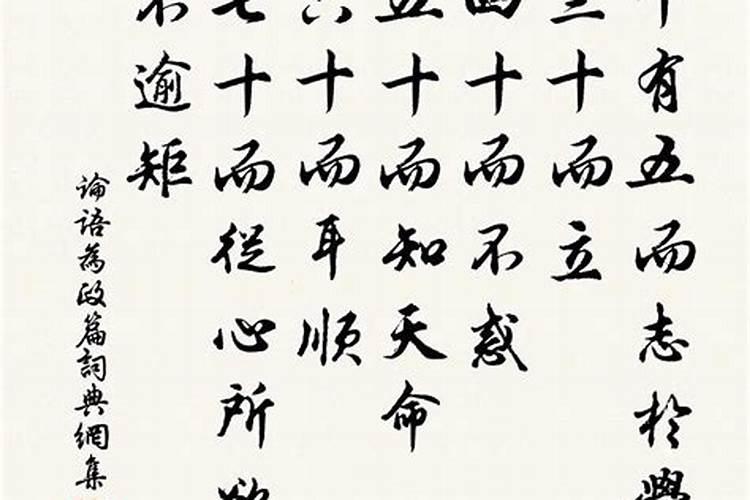 十有五而志於學
三十而立
四十而不惑
五十而知天命
六十而耳順
七十而從心所欲
不逾矩
論語為政篇詞典網集